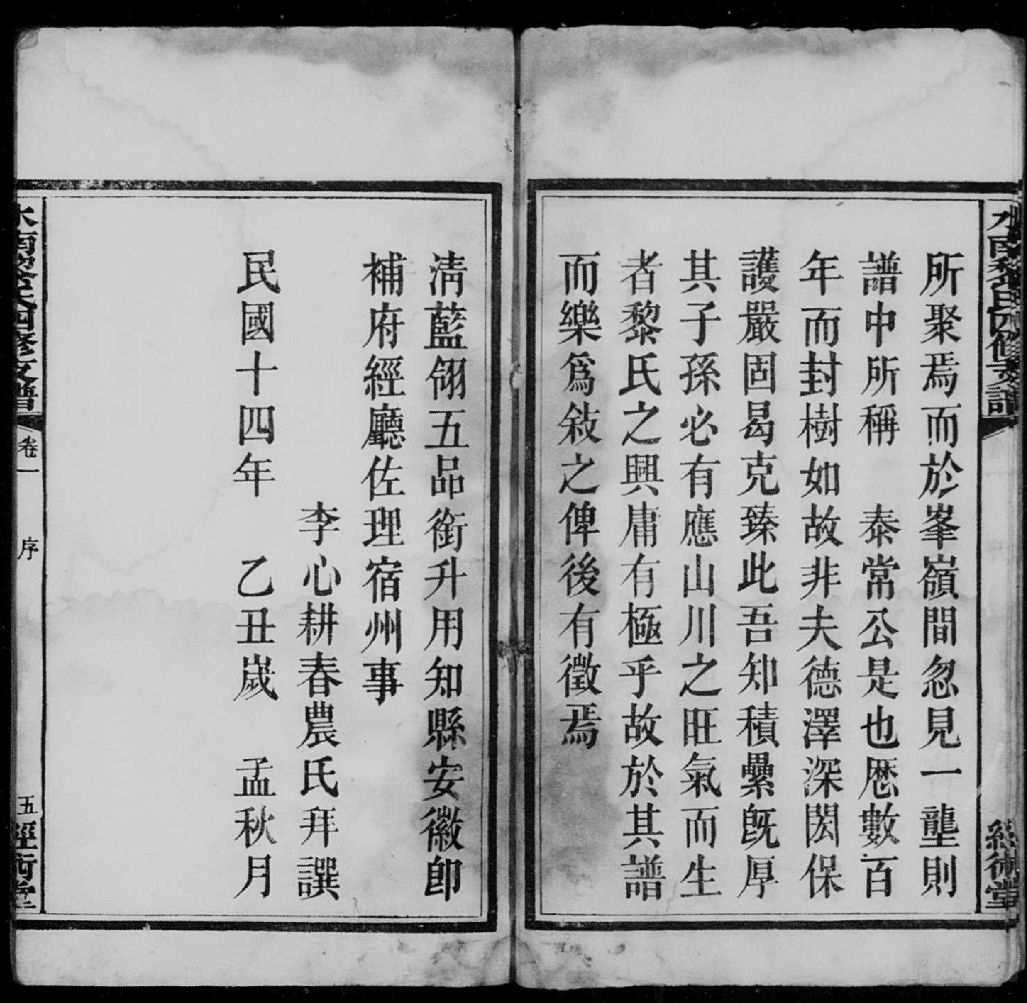 水南黎氏四修支譜
經術堂
所聚焉而於峯嶺間忽見一壟則
譜中所稱 泰常公是也厯數百
年而封樹如故非夫德澤深閎保
護嚴固曷克臻此吾知積纍旣厚
其子孫必有應山川之旺氣而生
者黎氏之興庸有極乎故於其譜
而樂爲敍之俾後有徵焉
清藍翎五品銜升用知縣安徽卽
補府經廳佐理宿州事
李心耕春農氏拜譔
民國十四年 乙丑嵗 孟秋月
水南黎氏四修支譜 卷一 序 五 經術堂